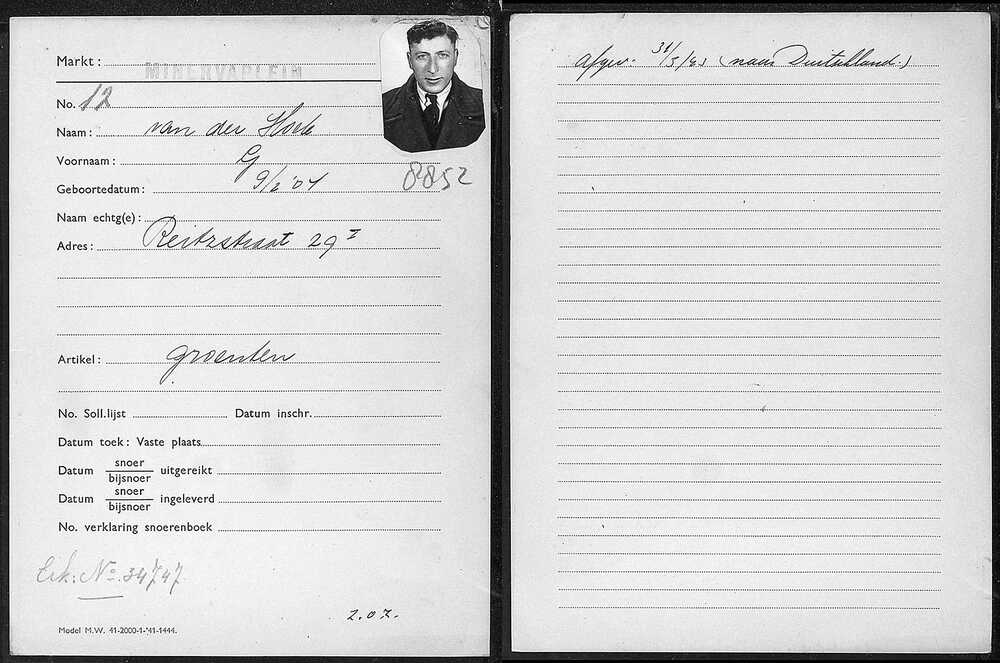 Markt :
MINERVAPLEIN
No. 12
Naam : van der Hoek
Voornaam : G
Geboortedatum : 9/2 '04
8852
Naam echtg(e) :
Adres : Reitzstraat 29 I
Artikel : groenten
No. Soll.lijst Datum inschr.
Datum toek : Vaste plaats
Datum snoer uitgereikt
bijsnoer
Datum snoer ingeleverd
bijsnoer
No. verklaring snoerenboek
Erk: No. 34747
Z.O.Z.
Model M.W. 41-2000-1-'41-1444.
Afgev. 31/5/43 (naar Duitschland.)